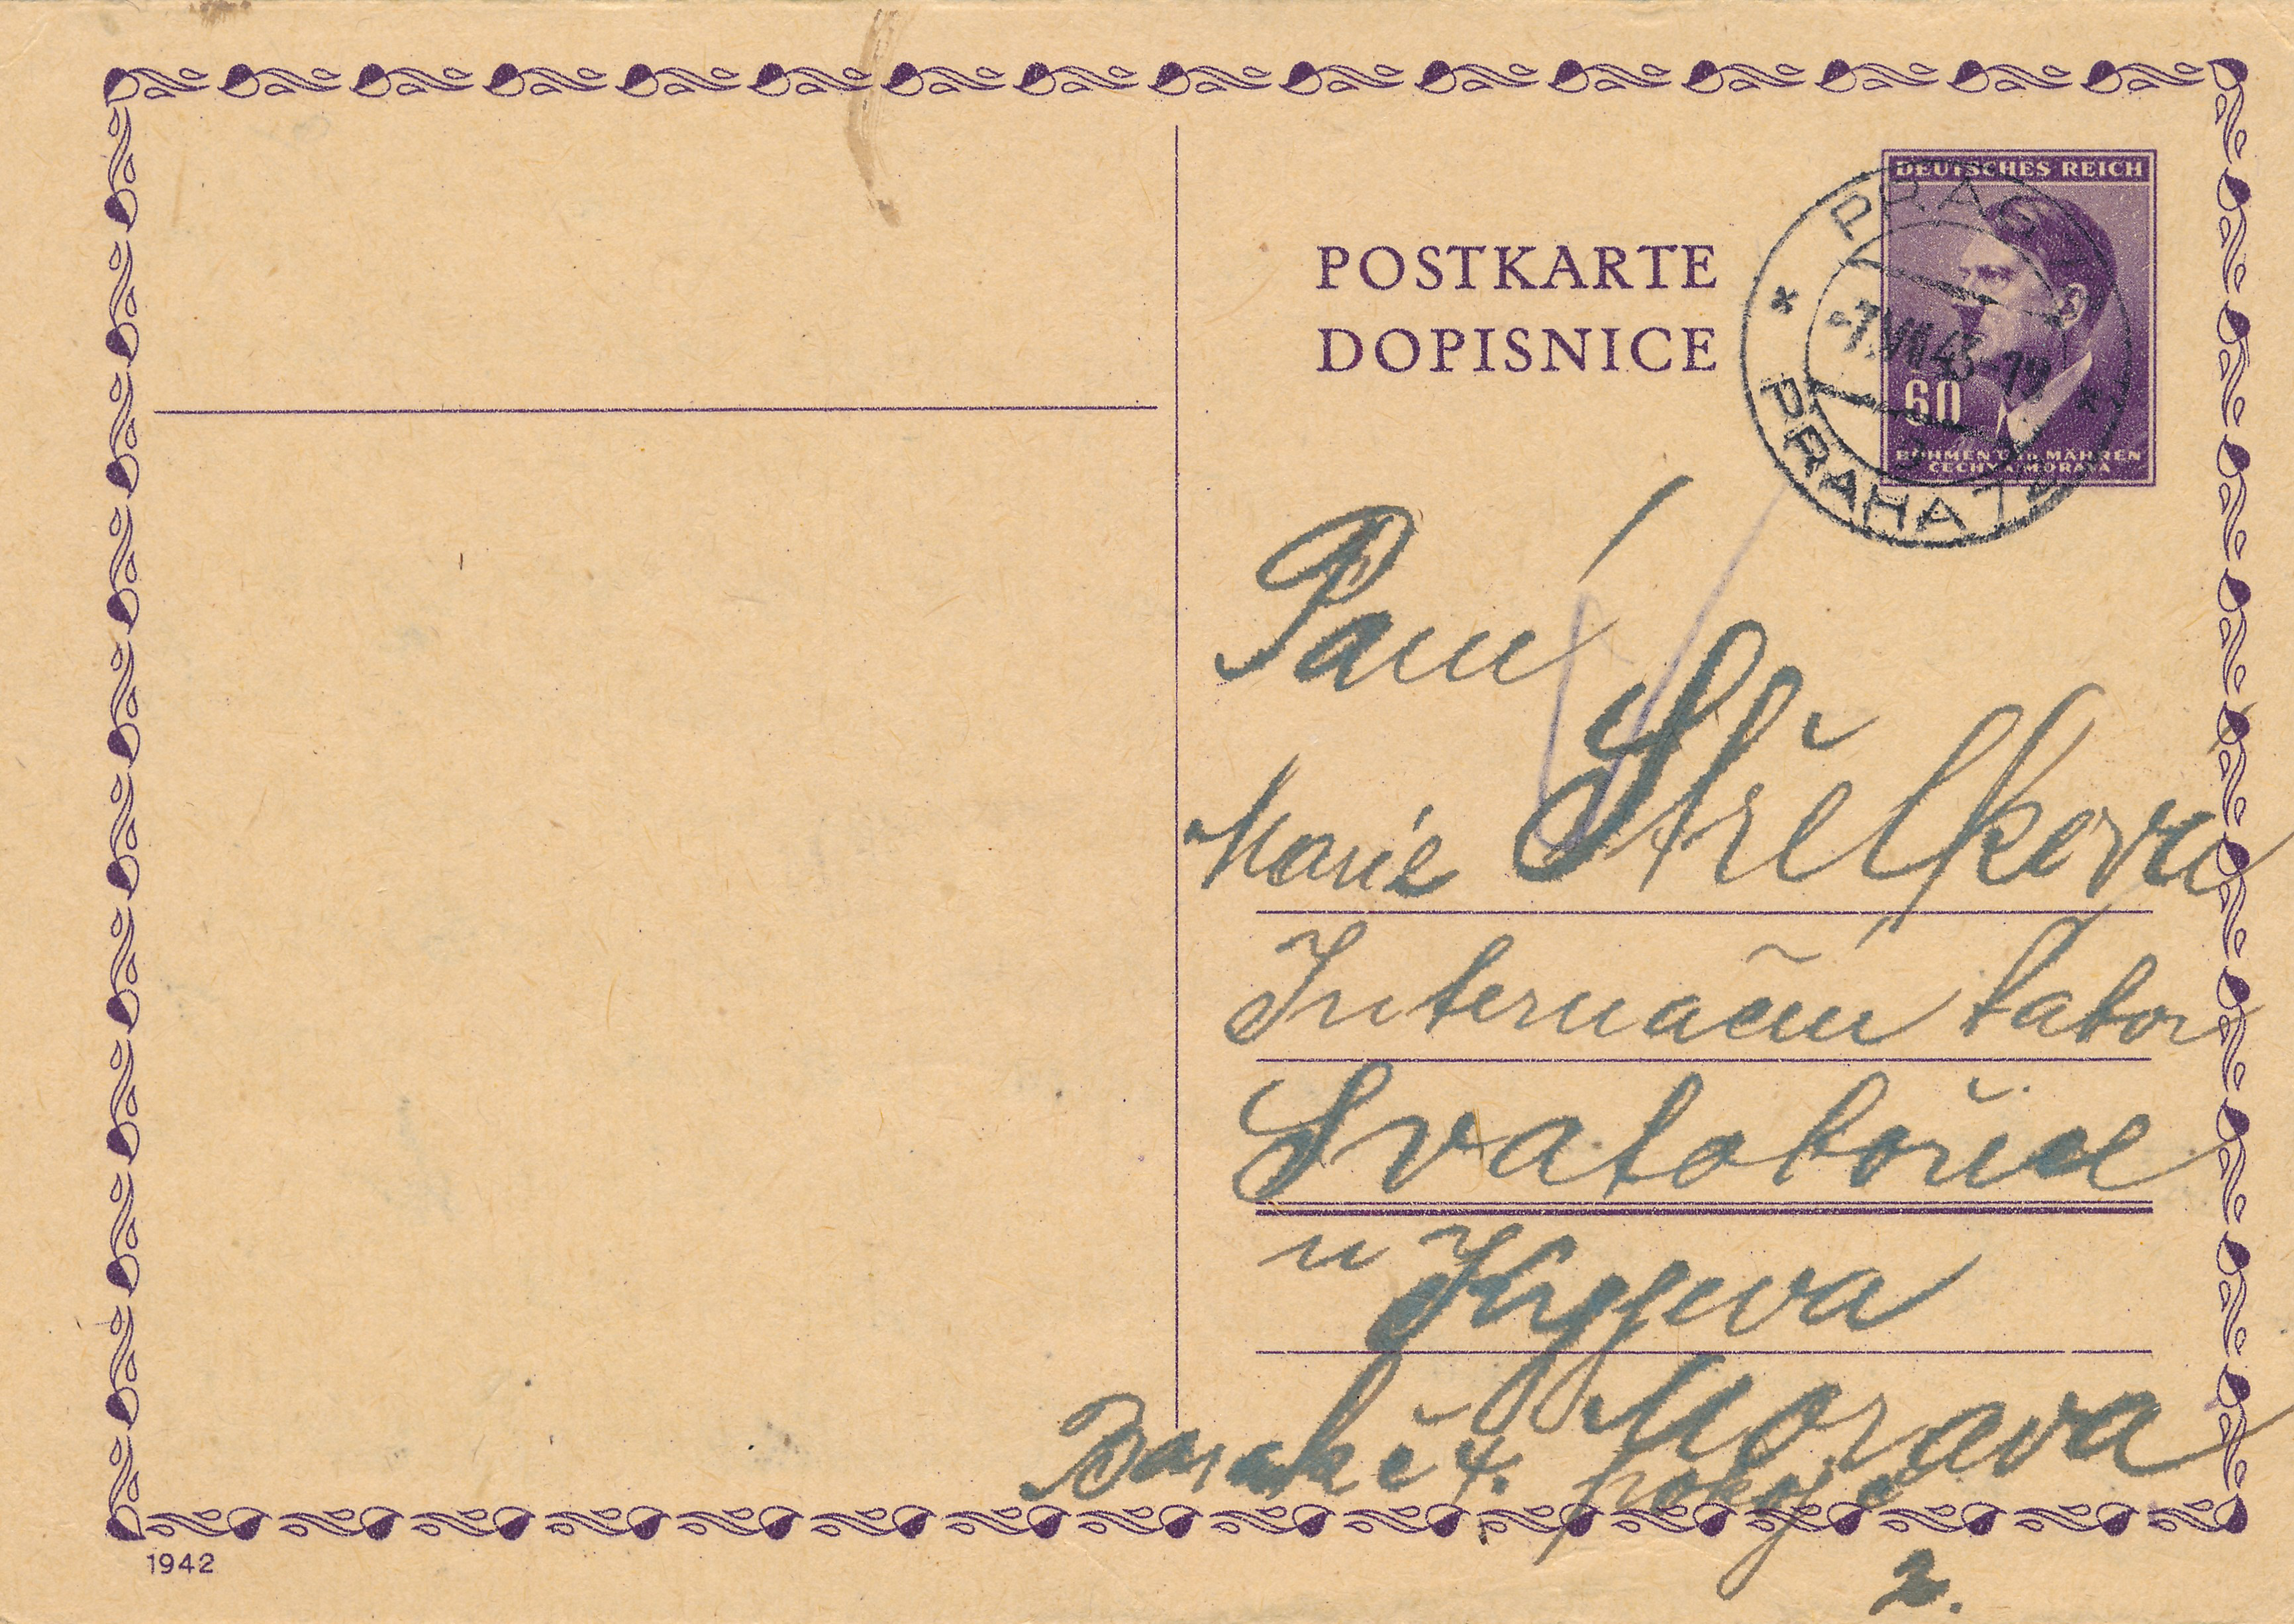 POSTKARTE
DOPISNICE
DEUTSCHES REICH
60
BÖHMEN UND MÄHREN
ČECHY A MORAVA
PRAG 7
-7.VII.43-19
PRAHA 7
Paní
Marie Střelkova
Internačni tabor
Svatobořice
u Kyjova
Morava
Barak č 4. pokoj č
2.
1942